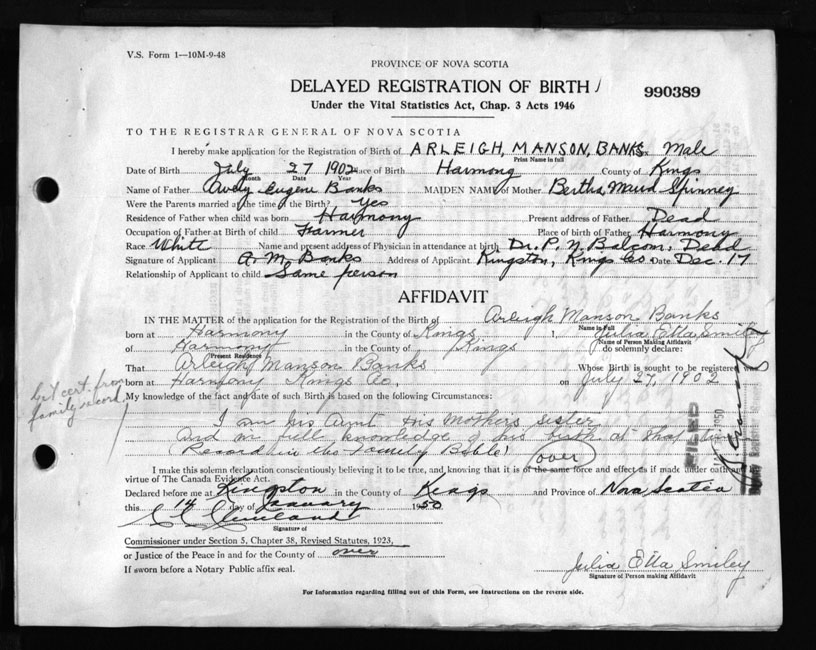 V.S. Form 1—10M-9-48
PROVINCE OF NOVA SCOTIA
DELAYED REGISTRATION OF BIRTH
990389
Under the Vital Statistics Act, Chap. 3 Acts 1946
TO THE REGISTRAR GENERAL OF NOVA SCOTIA
I hereby make application for the Registration of Birth of ARLEIGH, MANSON, BANKS Male
Print Name in full
Date of Birth July 27 1902 Place of Birth Harmony County of Kings
Month Date Year
Name of Father Eugene Banks MAIDEN NAME of Mother Bertha Maud Spinney
Were the Parents married at the time of the Birth? Yes
Residence of Father when child was born Harmony Present address of Father Dead
Occupation of Father at Birth of child Farmer Place of birth of Father Harmony
Race White Name and present address of Physician in attendance at birth Dr. P. N. Balcom, Dead
Signature of Applicant A. M. Banks Address of Applicant Kingston, Kings Co. Date Dec. 17
Relationship of Applicant to child Same person
AFFIDAVIT
IN THE MATTER of the application for the Registration of the Birth of Arleigh Manson Banks
Name in Full
born at Harmony in the County of Kings I, Julia Etta Smiley
Name of Person Making Affidavit
of Harmony Kings do solemnly declare:
Present Residence
That Arleigh Manson Banks Whose Birth is sought to be registered was
born at Harmony Kings Co. on July 27, 1902
My knowledge of the fact and date of such Birth is based on the following Circumstances:
cert. from
family record
I am his Aunt his Mothers sister
and in full knowledge of his birth at that time
(Record in the Family Bible) (over)
FILED
1950
I make this solemn declaration conscientiously believing it to be true, and knowing that it is of the same force and effect as if made under oath and by
virtue of The Canada Evidence Act.
Declared before me at Kingston in the County of Kings and Province of Nova Scotia
this 14 day of January 1950
Cleveland
Signature of
Commissioner under Section 5, Chapter 38, Revised Statutes, 1923,
or Justice of the Peace in and for the County of over
If sworn before a Notary Public affix seal.
Julia Etta Smiley
Signature of Person making Affidavit
For Information regarding filling out of this Form, see instructions on the reverse side.